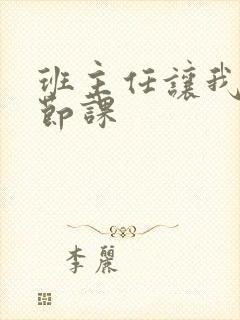 班主任讓我
節課
李麗